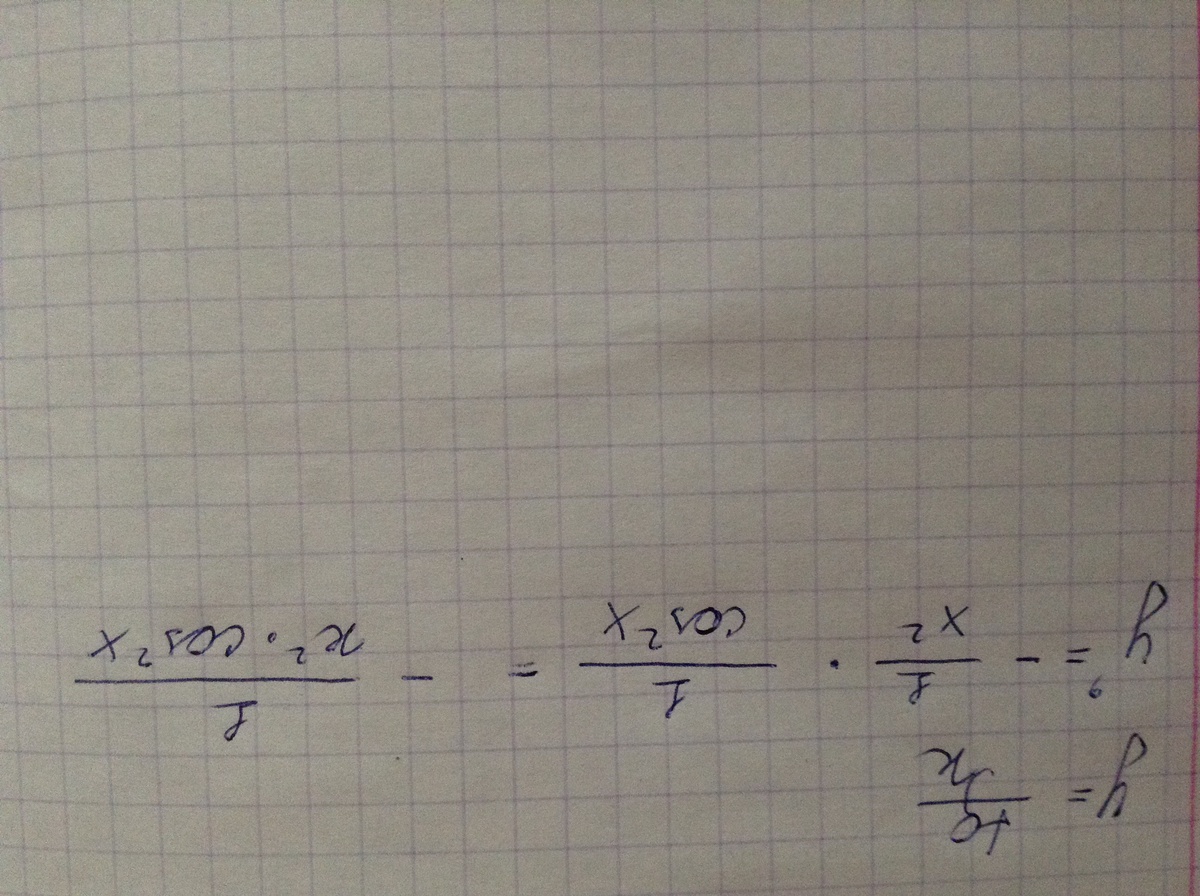 y = tg/x
y' = - 1/x² · 1/cos²x = - 1/(x² · cos²x)